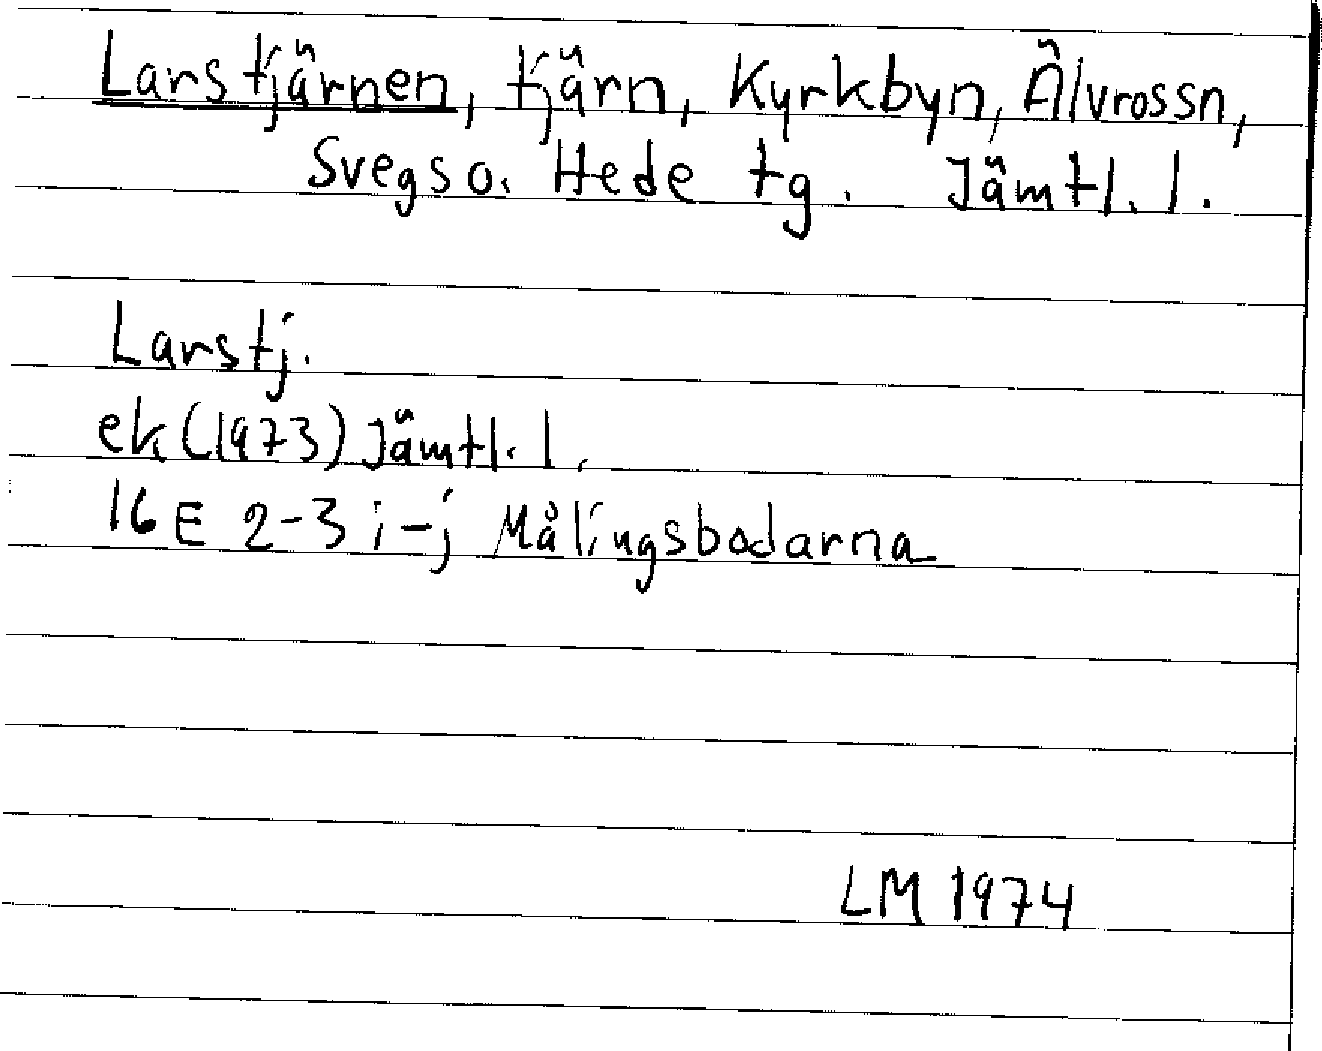 Larstjärnen, tjärn, Kyrkbyn, Älvrossn,
Svegs o. Hede tg. Jämtl. l.
Larstj.
ek (1973) Jämtl. l.
16E 2-3 i-j Målingsbodarna
LM 1974